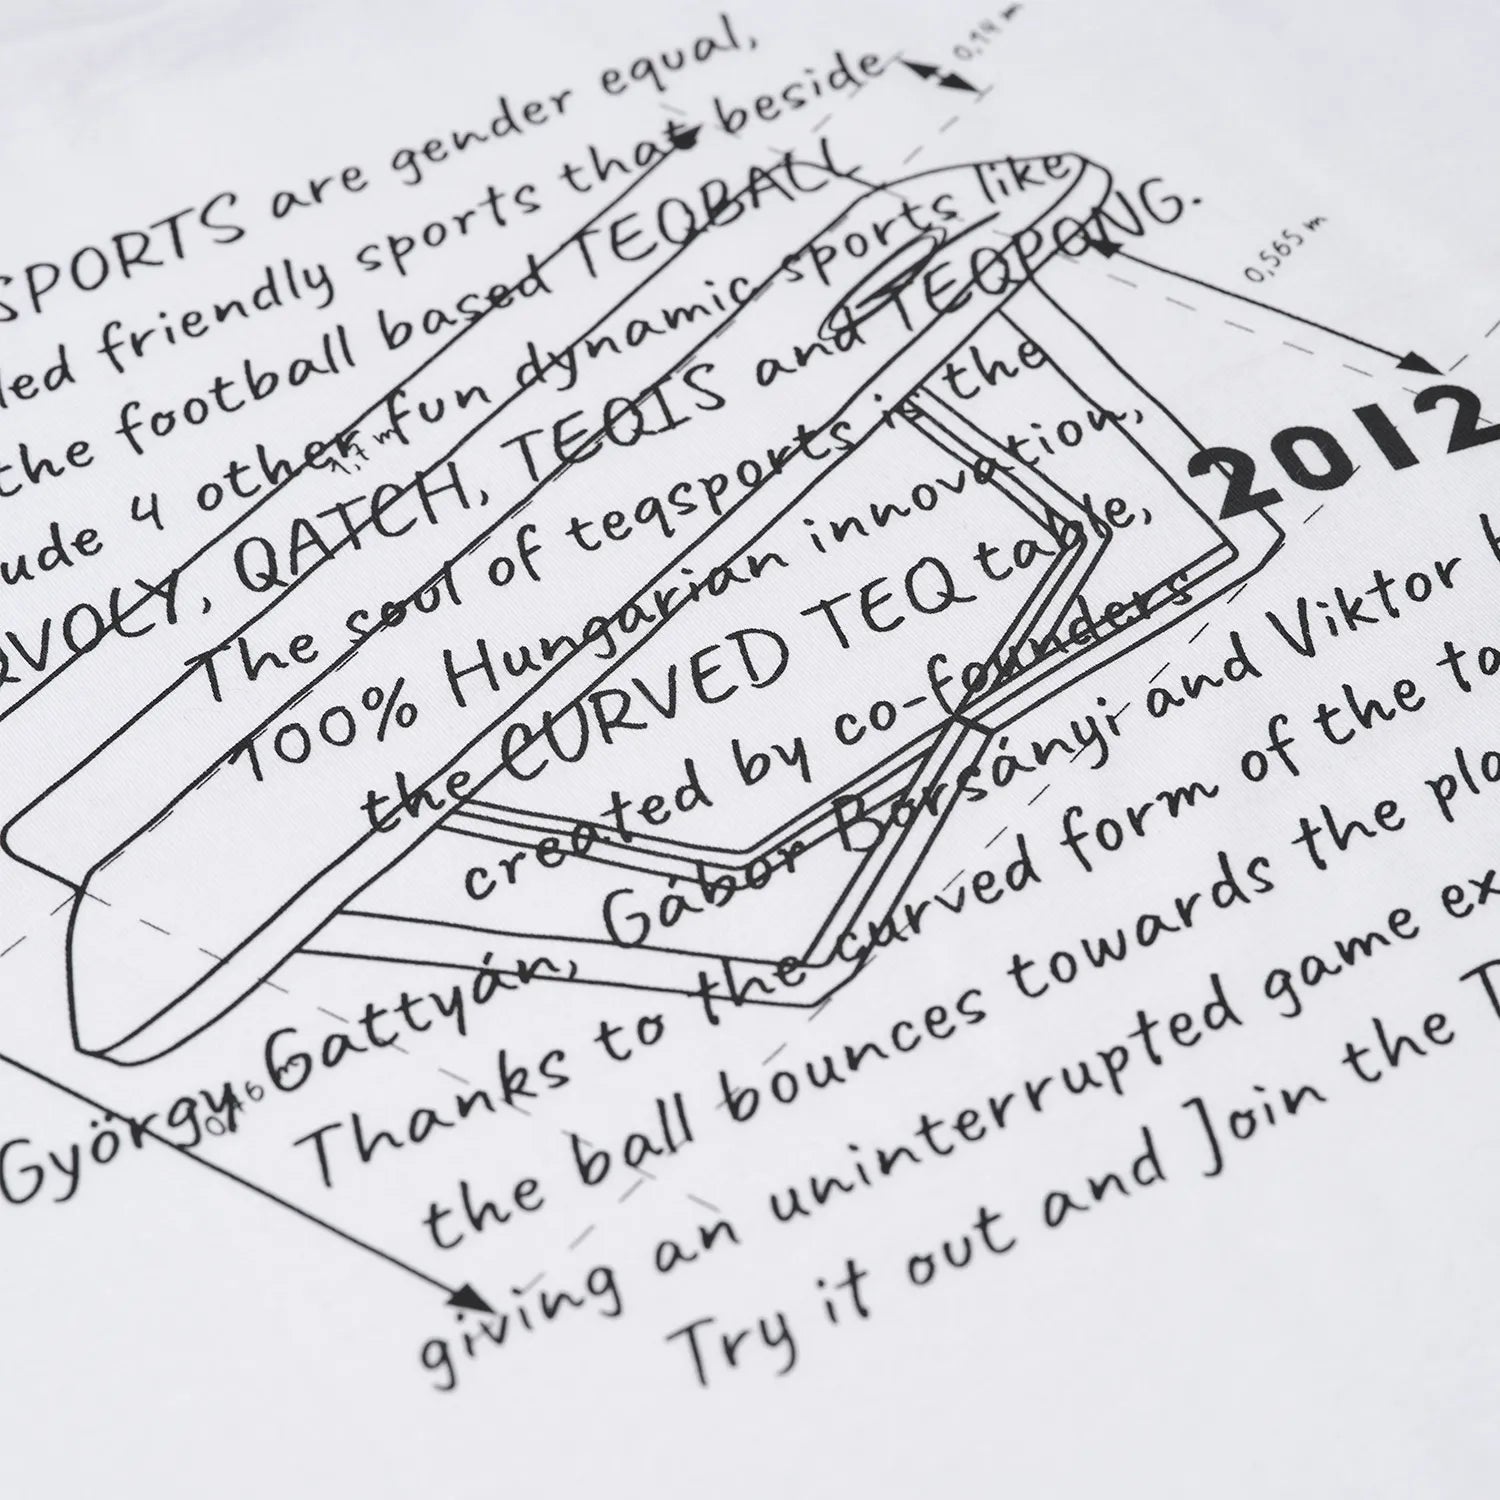 SPORTS are gender equal,
led friendly sports that beside
the football based TEQBALL
ude 4 other fun dynamic sports like
QVOLY, QATCH, TEQIS and TEQPONG.
The soul of teqsports is the
100% Hungarian innovation,
the CURVED TEQ table,
created by co-founders
György Gattyán, Gábor Borsányi and Viktor
Thanks to the curved form of the
the ball bounces towards the
giving an uninterrupted game
Try it out and Join the
2012
0,14 m
0,565 m
1,7 m